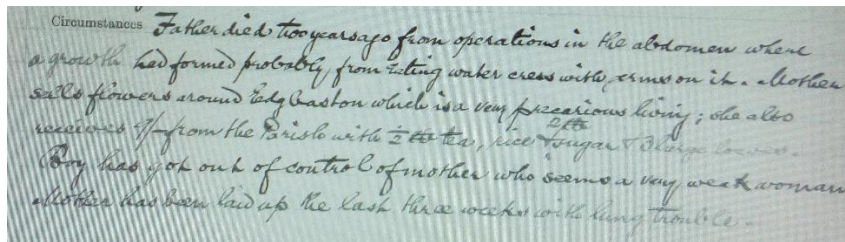 Circumstances Father died two years ago from operations in the abdomen where
a growth had formed probably from Eating water cress with germs on it. Mother
sells flowers around Edgbaston which is a very precarious living; she also
receives 9/- from the Parish with ½ lb tea, rice 2 lb sugar & 3 large loaves.
Boy has got out of control of mother who seems a very weak woman
Mother has been laid up the last three weeks with lung trouble.